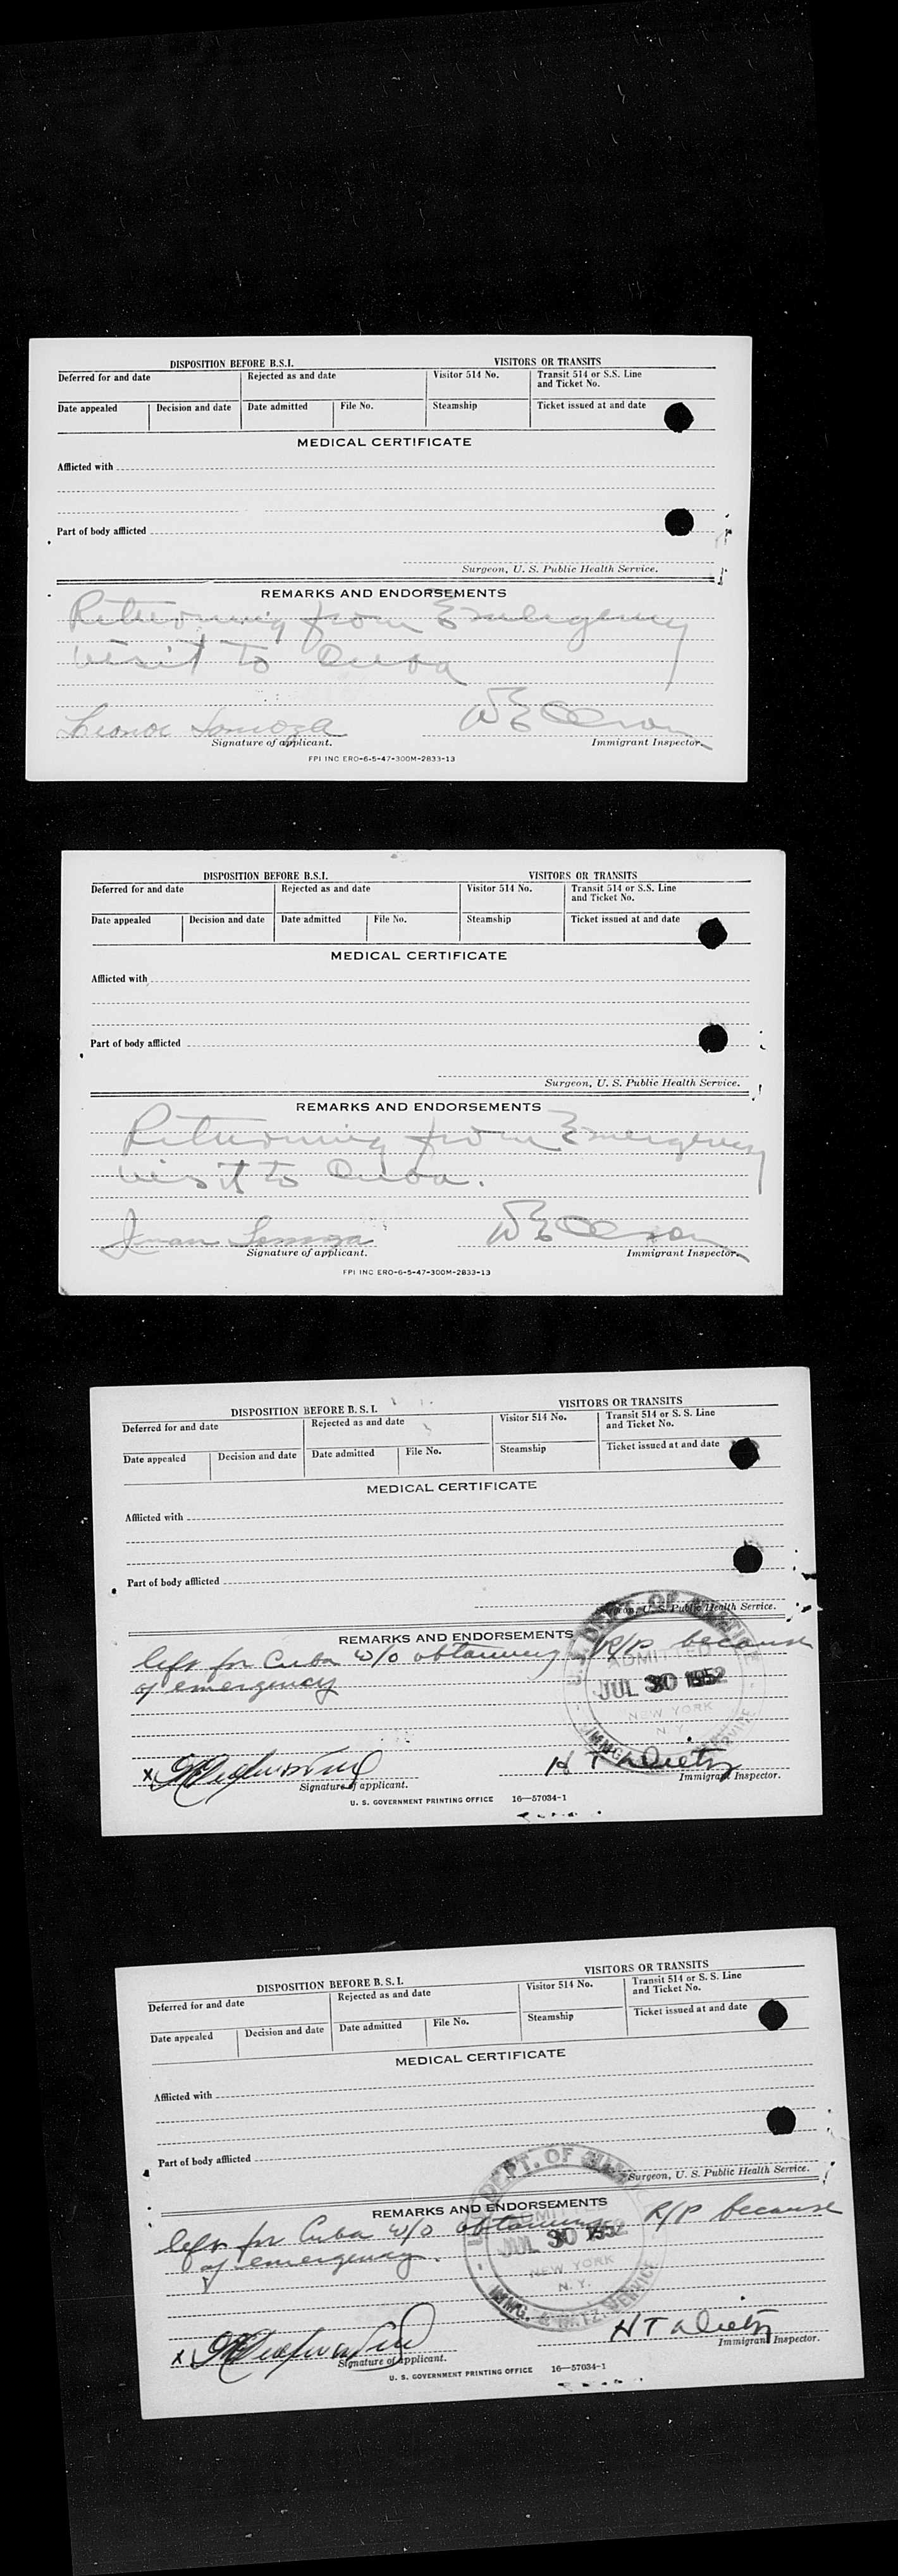 DISPOSITION BEFORE B.S.I. VISITORS OR TRANSITS
Deferred for and date Rejected as and date Visitor 514 No. Transit 514 or S.S. Line and Ticket No.
Date appealed Decision and date Date admitted File No. Steamship Ticket issued at and date
MEDICAL CERTIFICATE
Afflicted with
Part of body afflicted
Surgeon, U. S. Public Health Service.
REMARKS AND ENDORSEMENTS
Returning from Emergency
visit to Cuba
Leonor Somoza
Signature of applicant. Immigrant Inspector.
FPI INC ERO-6-5-47-300M-2833-13
DISPOSITION BEFORE B.S.I. VISITORS OR TRANSITS
Deferred for and date Rejected as and date Visitor 514 No. Transit 514 or S.S. Line and Ticket No.
Date appealed Decision and date Date admitted File No. Steamship Ticket issued at and date
MEDICAL CERTIFICATE
Afflicted with
Part of body afflicted
Surgeon, U. S. Public Health Service.
REMARKS AND ENDORSEMENTS
Returning from Emergency
visit to Cuba.
Juan Somoza
Signature of applicant. Immigrant Inspector.
FPI INC ERO-6-5-47-300M-2833-13
DISPOSITION BEFORE B. S. I. VISITORS OR TRANSITS
Deferred for and date Rejected as and date Visitor 514 No. Transit 514 or S. S. Line and Ticket No.
Date appealed Decision and date Date admitted File No. Steamship Ticket issued at and date
MEDICAL CERTIFICATE
Afflicted with
Part of body afflicted
Surgeon, U. S. Public Health Service.
REMARKS AND ENDORSEMENTS
left for Cuba w/o obtaining R/P because
of emergency
ADMITTED
JUL 30 1952
NEW YORK
N. Y.
x H T
Signature of applicant. Immigrant Inspector.
U. S. GOVERNMENT PRINTING OFFICE 16—57034-1
DISPOSITION BEFORE B. S. I. VISITORS OR TRANSITS
Deferred for and date Rejected as and date Visitor 514 No. Transit 514 or S. S. Line and Ticket No.
Date appealed Decision and date Date admitted File No. Steamship Ticket issued at and date
MEDICAL CERTIFICATE
Afflicted with
Part of body afflicted
Surgeon, U. S. Public Health Service.
REMARKS AND ENDORSEMENTS
left for Cuba w/o obtaining R/P because
of emergency.
JUL 30 1952
NEW YORK
N. Y.
IMMG. & NATZ. SERVICE
x H T
Signature of applicant. Immigrant Inspector.
U. S. GOVERNMENT PRINTING OFFICE 16—57034-1